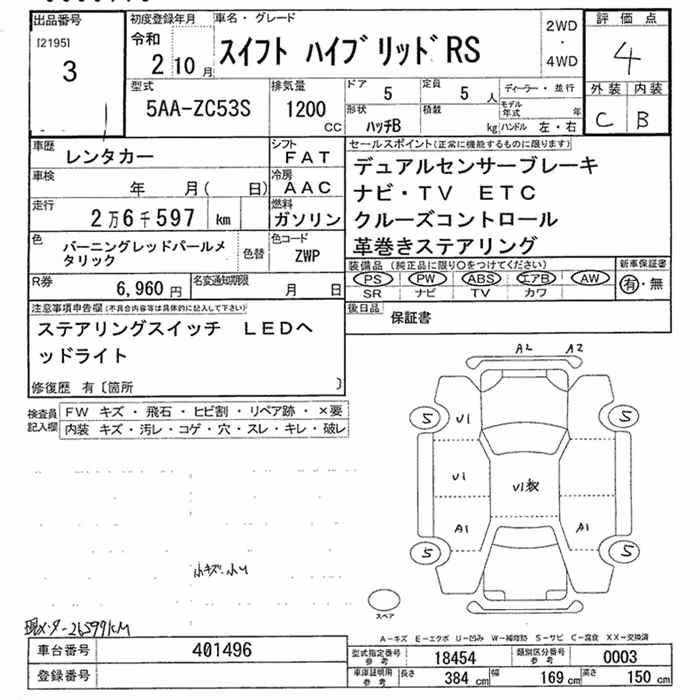 出品番号
[2195]
3
初度登録年月
令和
2 10 月
車名・グレード
スイフト ハイブリッド RS
2WD
・
4WD
評価点
4
外装 内装
C B
型式
5AA-ZC53S
排気量
1200
CC
ドア
5
定員
5 人
形状
ハッチB
積載
kg
ディーラー・並行
モデル年式 年
ハンドル 左・右
車歴
レンタカー
シフト
FAT
車検
年 月( 日)
冷房
AAC
走行
2万6千597 km
燃料
ガソリン
色
バーニングレッドパールメタリック
色替
色コード
ZWP
R券
6,960 円
名変通知期限
月 日
セールスポイント(正常に機能するものに限ります)
デュアルセンサーブレーキ
ナビ・TV ETC
クルーズコントロール
革巻きステアリング
装備品(純正品に限り○をつけてください)
PS PW ABS エアB AW
SR ナビ TV カワ
新車保証書
有・無
後日品
保証書
注意事項申告欄(不具合内容等は具体的に記入して下さい)
ステアリングスイッチ LEDヘ
ッドライト
修復歴 有〔箇所 〕
検査員記入欄
FW キズ・飛石・ヒビ割・リペア跡・×要
内装 キズ・汚レ・コゲ・穴・スレ・キレ・破レ
A2 A2
5 U1 5
U1
U1
A1 A1
5 5
スペア
小キズ・小U
現メーター26599KM
A-キズ E-エクボ U-凹み W-補修跡 S-サビ C-腐食 XX-交換済
車台番号
401496
登録番号
型式指定番号
参考
18454
類別区分番号
参考
0003
車庫証明用
参考
長さ 384 cm
幅 169 cm
高さ 150 cm